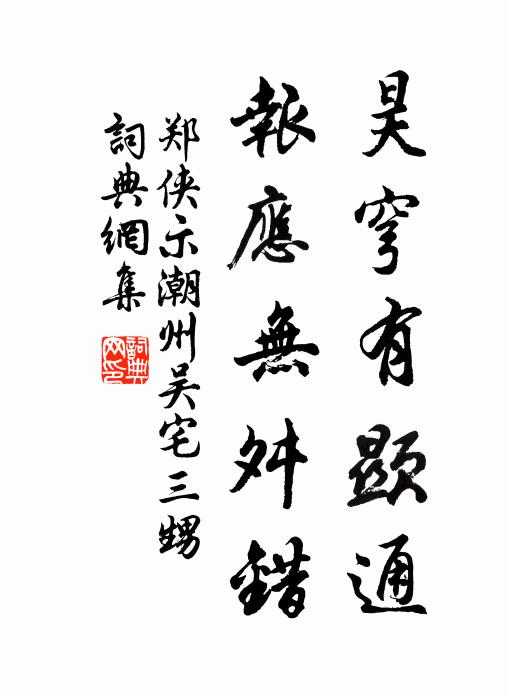 昊穹有顯通
報應無舛錯
郑侠示潮州吴宅三甥
詞典網集
詞典網印